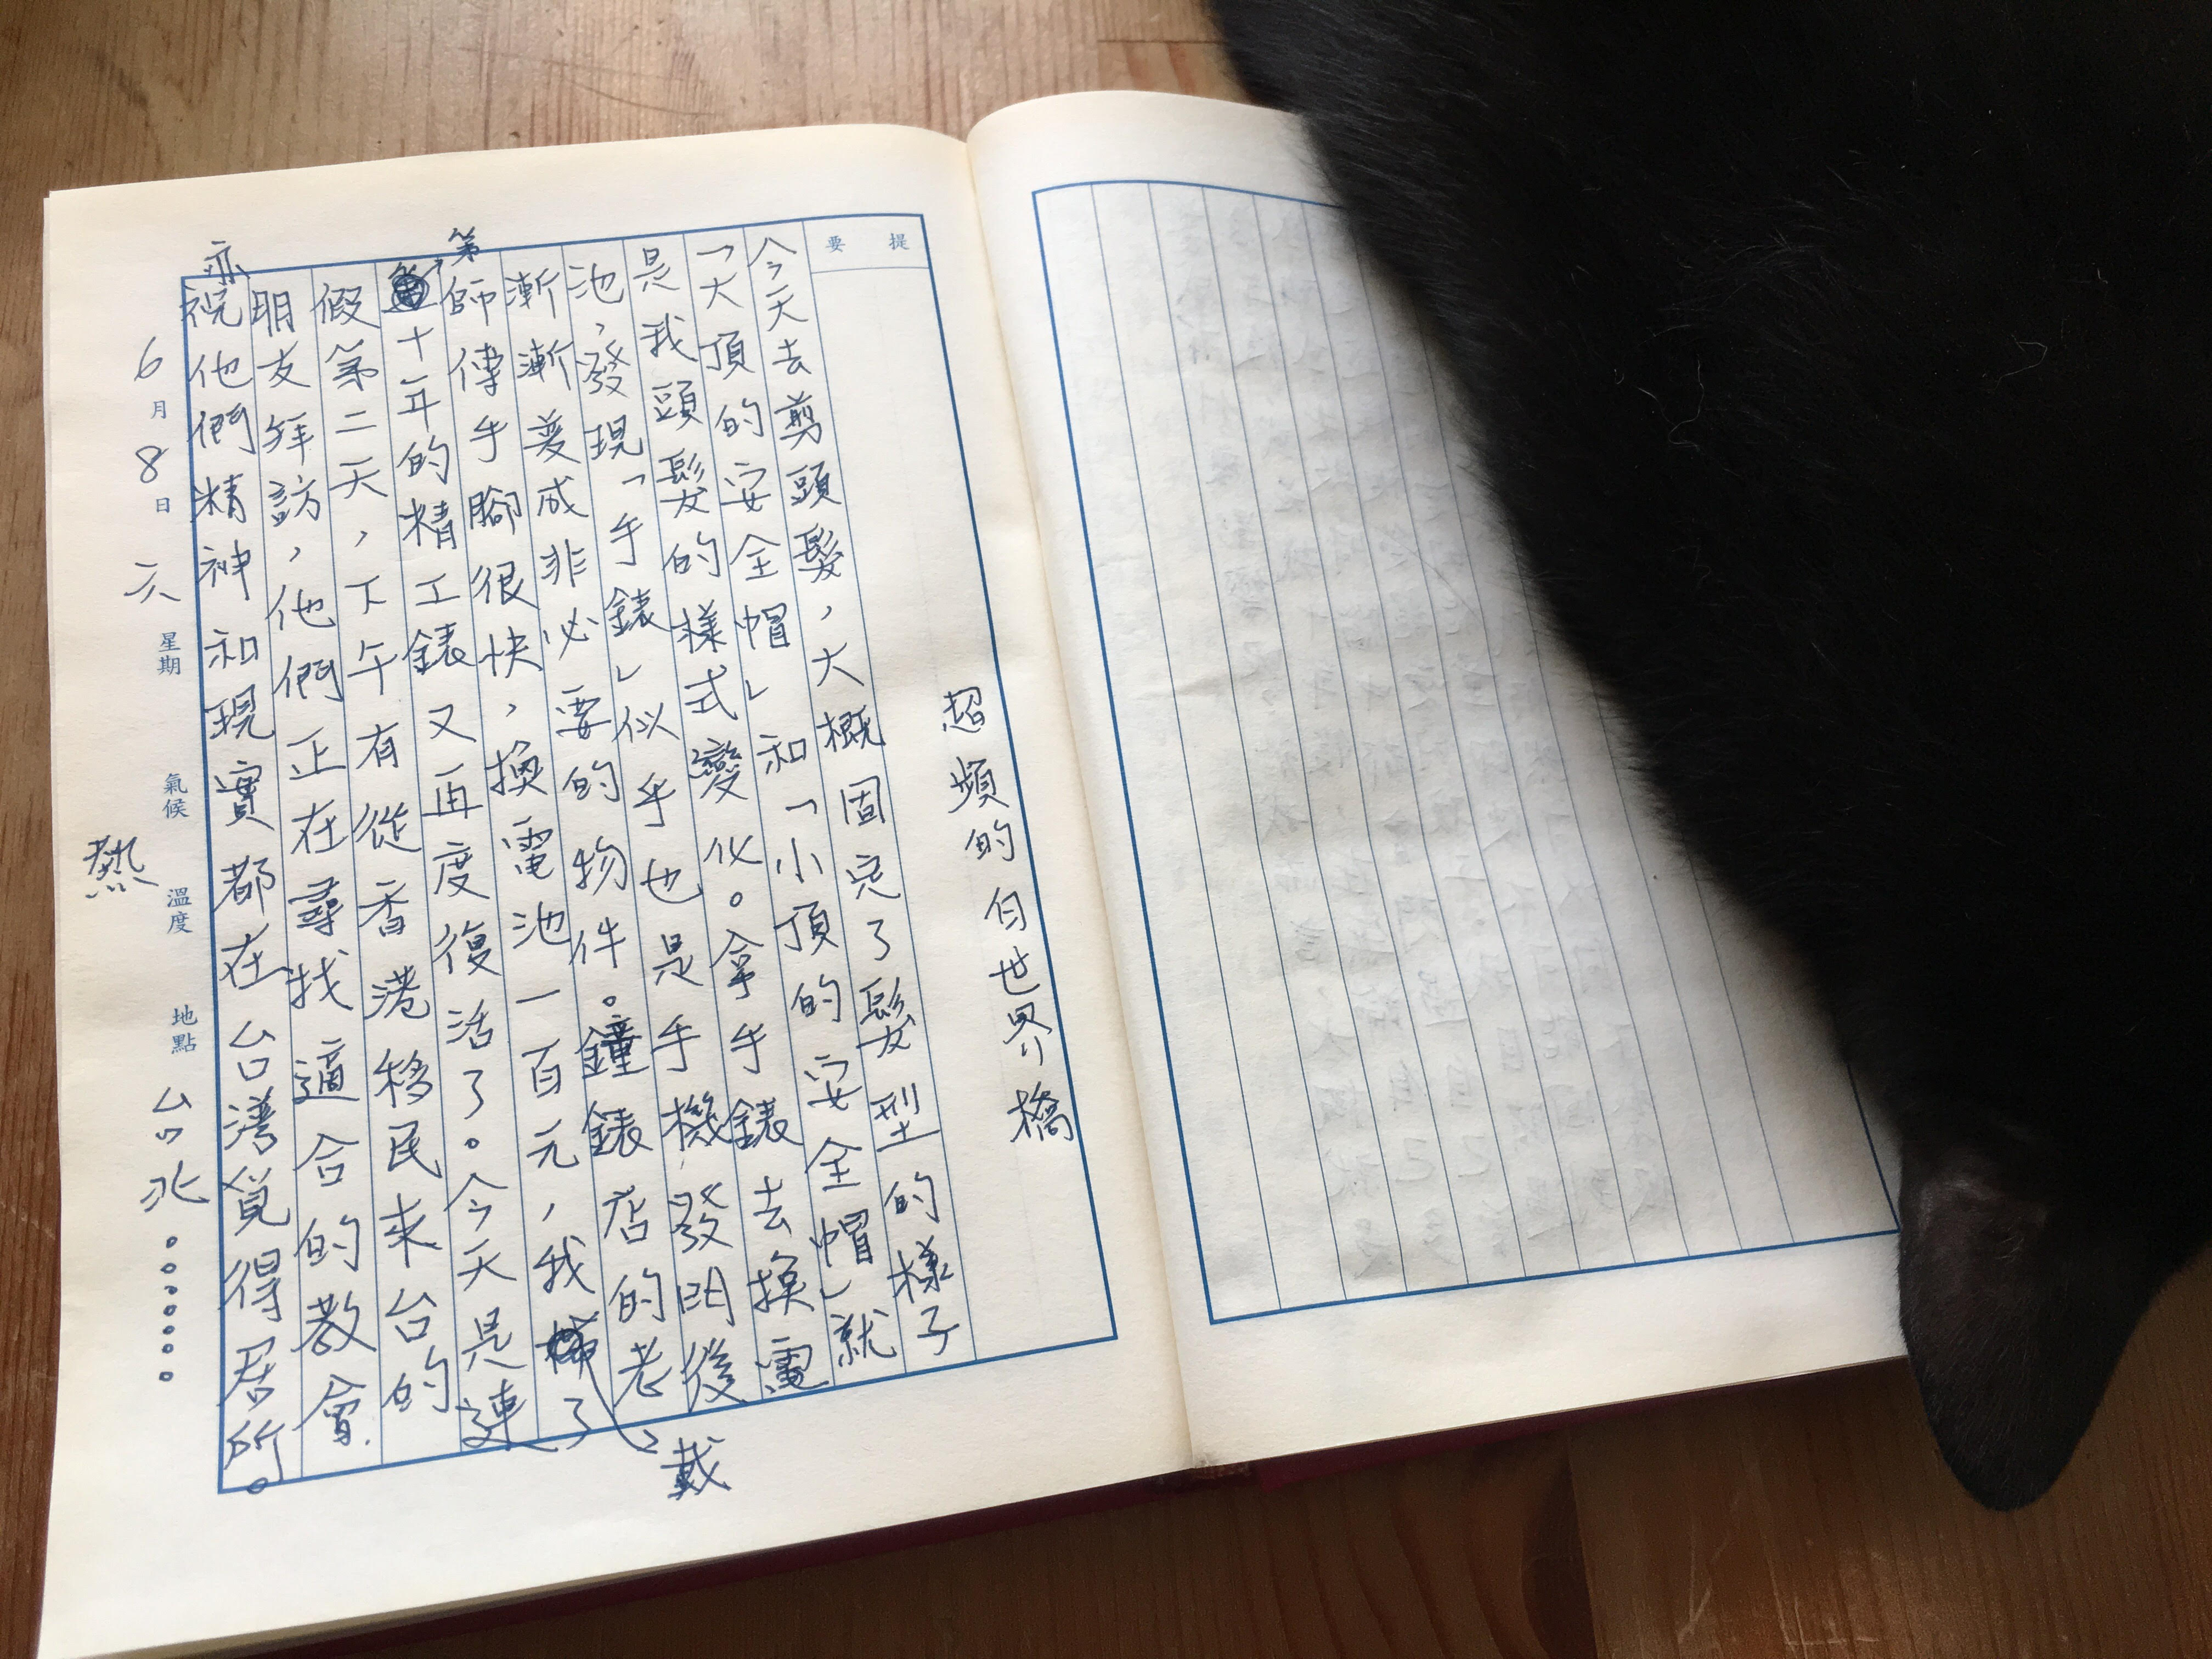 提要
超頻的自世界橋
今天去剪頭髮，大概固定了髮型的樣子
「大頂的安全帽」和「小頂的安全帽」就
是我頭髮的樣式變化。拿手錶去換電
池，發現「手錶」似乎也是手機發明後
漸漸變成非必要的物件。鐘錶店的老
師傅手腳很快，換電池一百元，我戴了
第十年的精工錶又再度復活了。今天是連
假第二天，下午有從香港移民來台的
朋友拜訪，他們正在尋找適合的教會
亦祝他們精神和現實都在台灣覓得居所。
6月8日 六 星期 氣候 熱 溫度 地點 台北